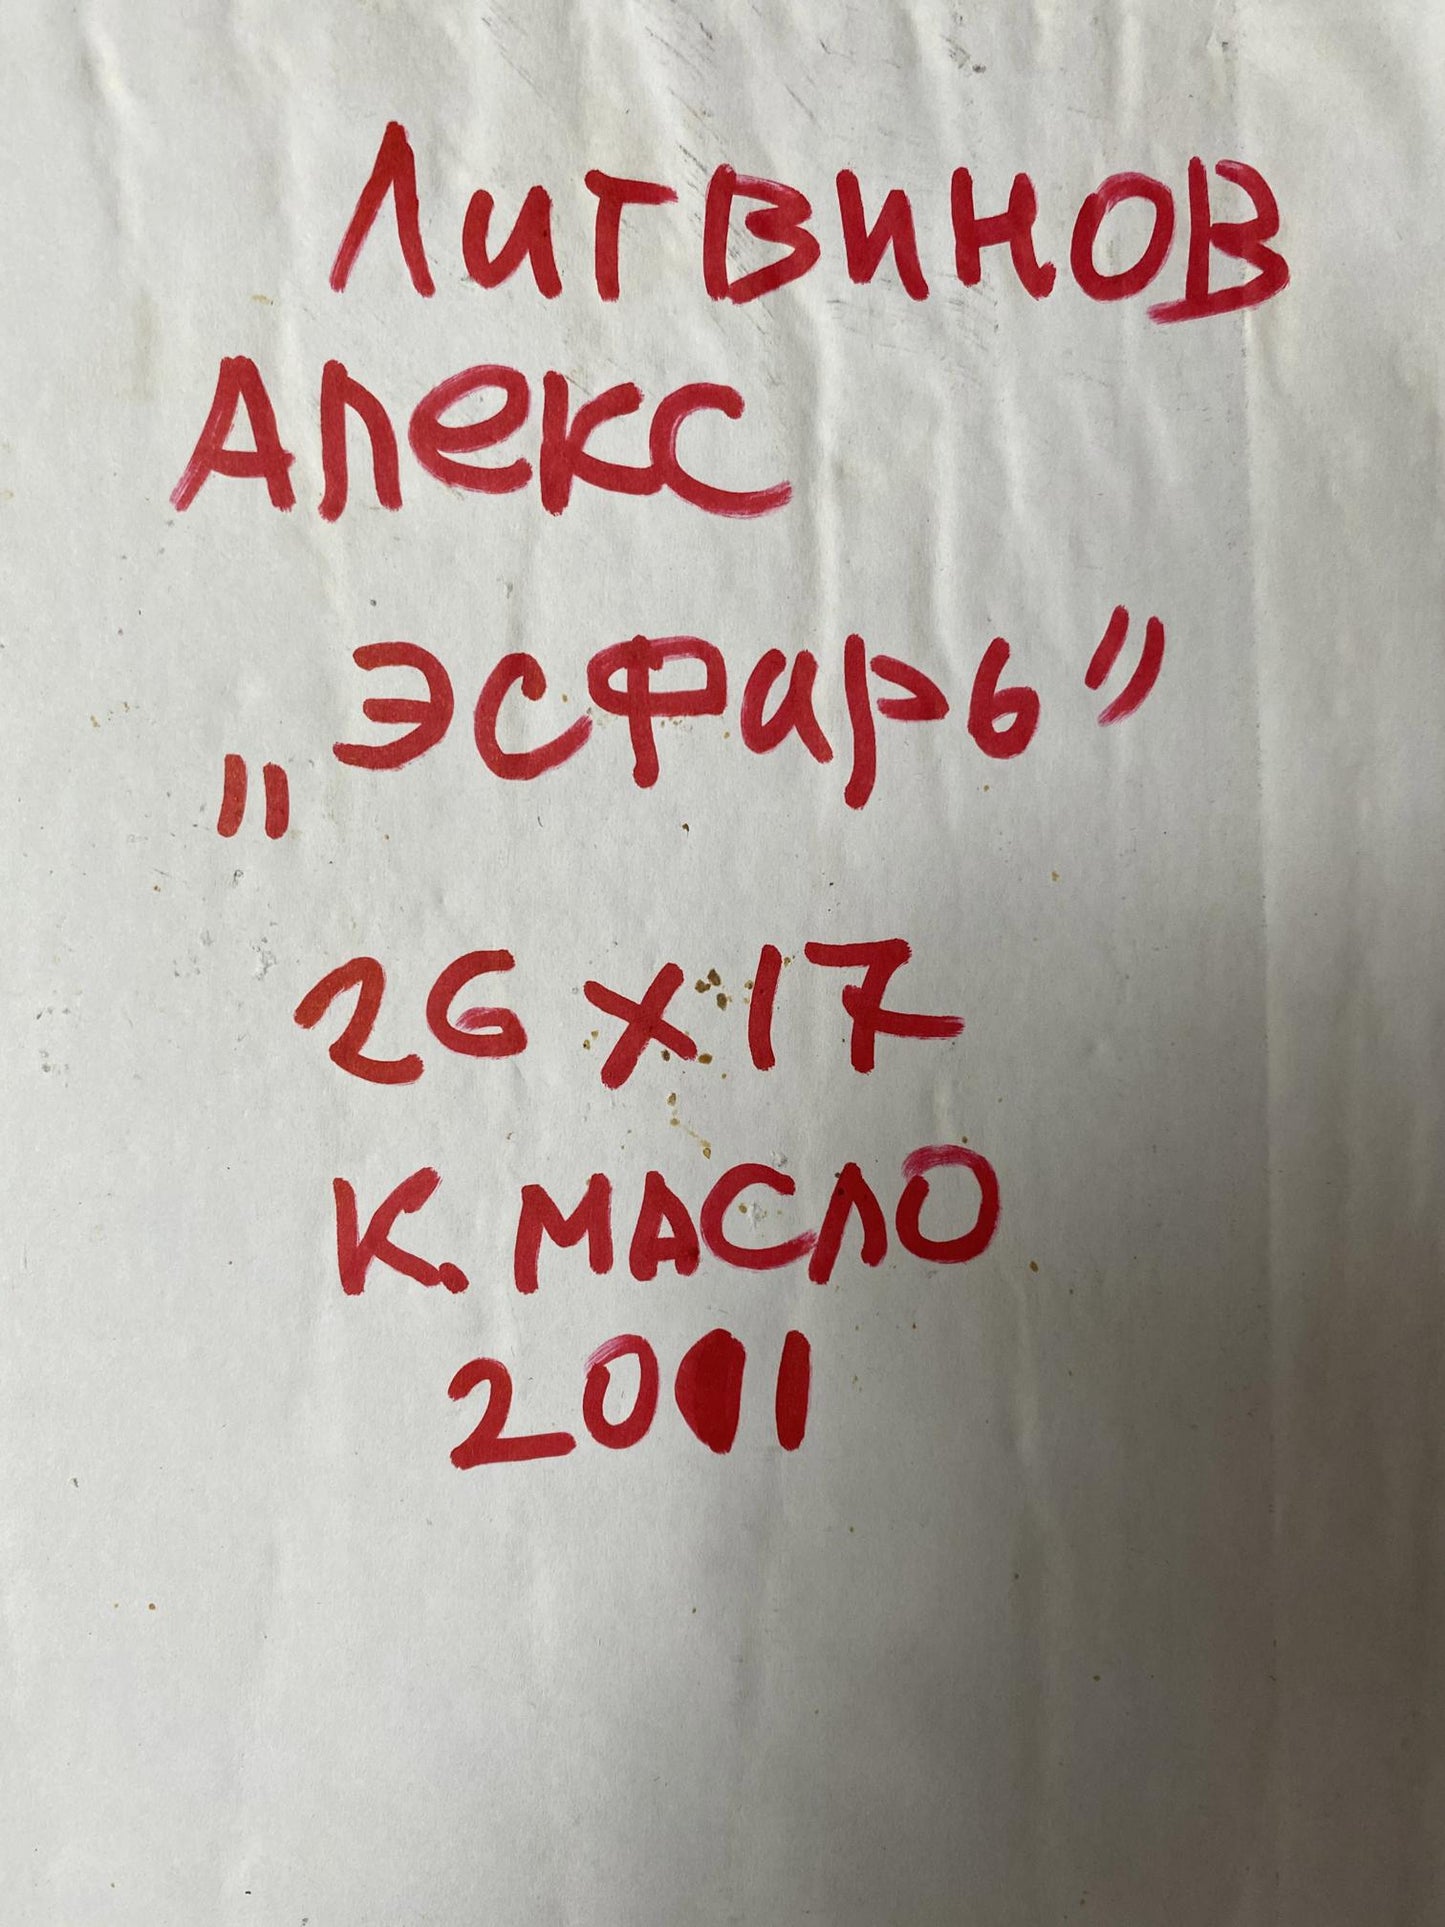 Литвинов
Алекс
„Эсфарь”
26 х 17
К. МАСЛО
2011